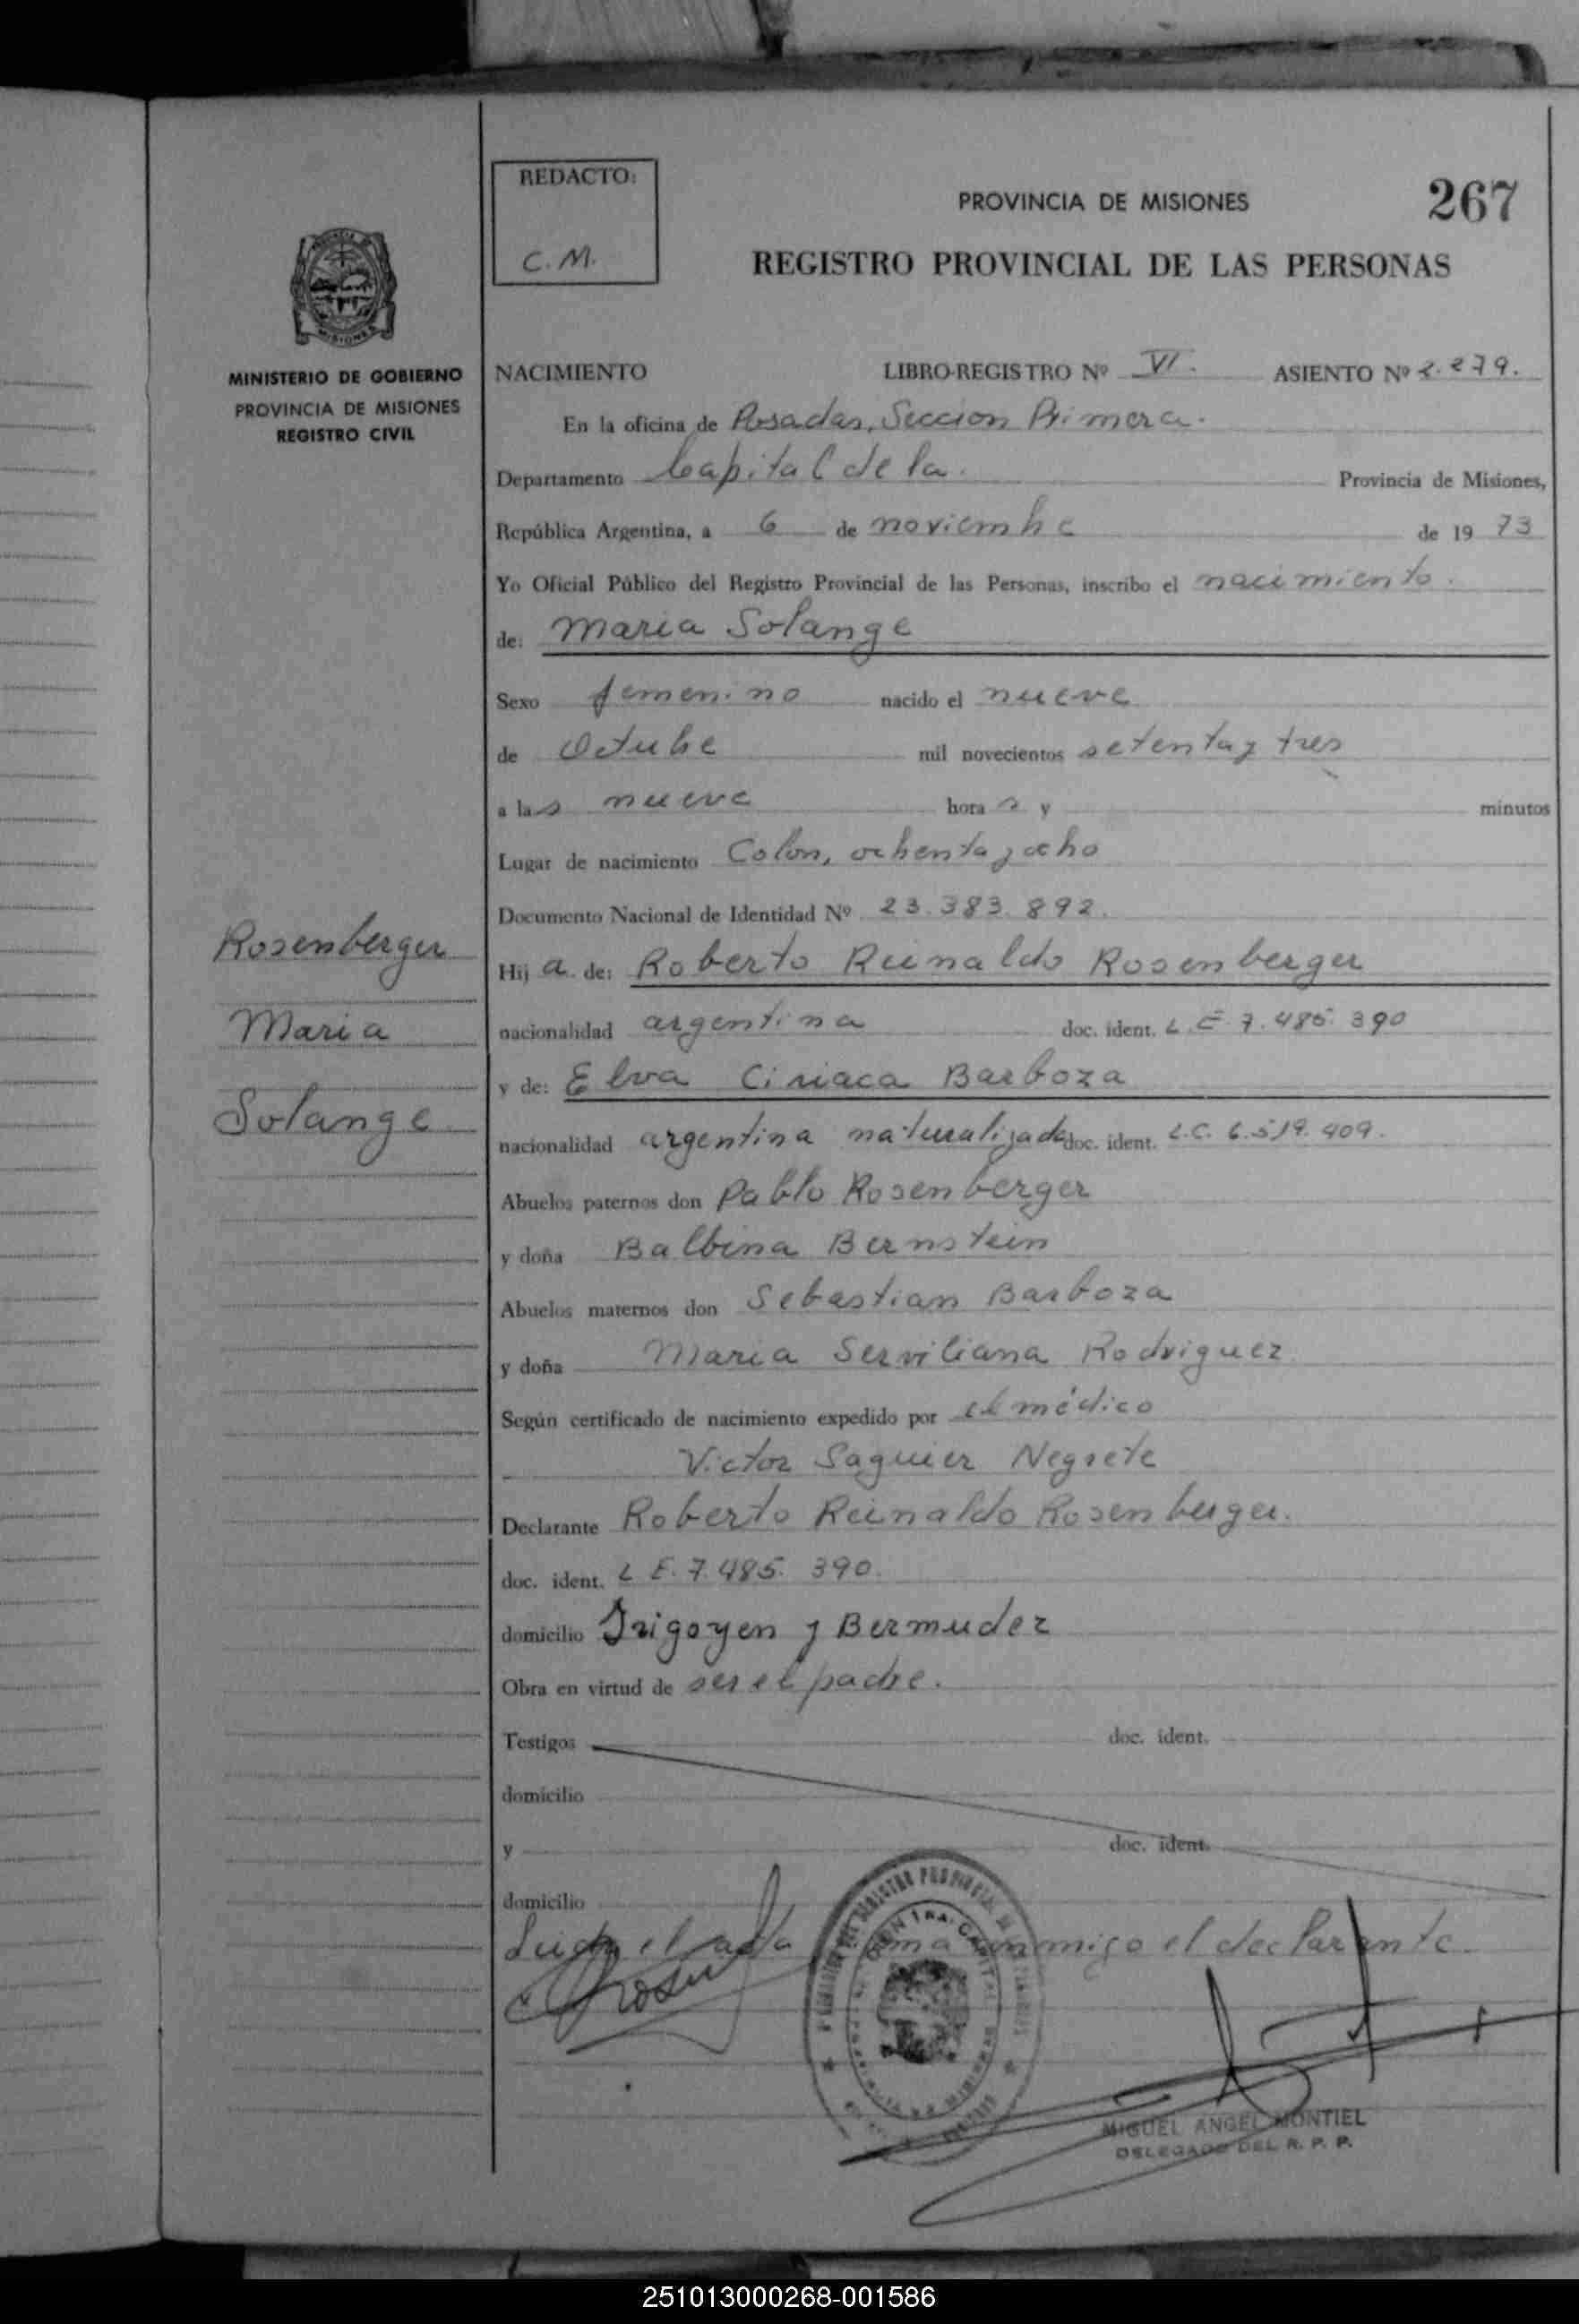 REDACTO:
C. M.
PROVINCIA DE MISIONES
267
REGISTRO PROVINCIAL DE LAS PERSONAS
MISIONES
MINISTERIO DE GOBIERNO
PROVINCIA DE MISIONES
REGISTRO CIVIL
NACIMIENTO LIBRO-REGISTRO Nº VI. ASIENTO Nº 2.279.
En la oficina de Posadas, Seccion Primera.
Departamento Capital de la. Provincia de Misiones,
República Argentina, a 6 de noviembre de 19 73
Yo Oficial Público del Registro Provincial de las Personas, inscribo el nacimiento.
de: Maria Solange
Sexo femenino nacido el nueve
de Octubre mil novecientos setenta y tres
a las nueve horas y minutos
Lugar de nacimiento Colon, ochenta y ocho
Documento Nacional de Identidad Nº 23.383.892.
Hija de: Roberto Reinaldo Rosenberger
nacionalidad argentina doc. ident. L.E. 7.485.390
y de: Elva Ciriaca Barboza
nacionalidad argentina naturalizada doc. ident. L.C. 6.519.409.
Abuelos paternos don Pablo Rosenberger
y doña Balbina Bernstein
Abuelos maternos don Sebastian Barboza
y doña Maria Serviliana Rodriguez
Según certificado de nacimiento expedido por el médico
Victor Saguier Negrete
Declarante Roberto Reinaldo Rosenberger.
doc. ident. L E. 7.485.390.
domicilio Irigoyen y Bermudez
Obra en virtud de ser el padre.
Testigos doc. ident.
domicilio
y doc. ident.
domicilio
Leida el acta firma conmigo el declarante.
MIGUEL ANGEL MONTIEL
DELEGADO DEL R. P. P.
Rosenberger
Maria
Solange.
251013000268-001586